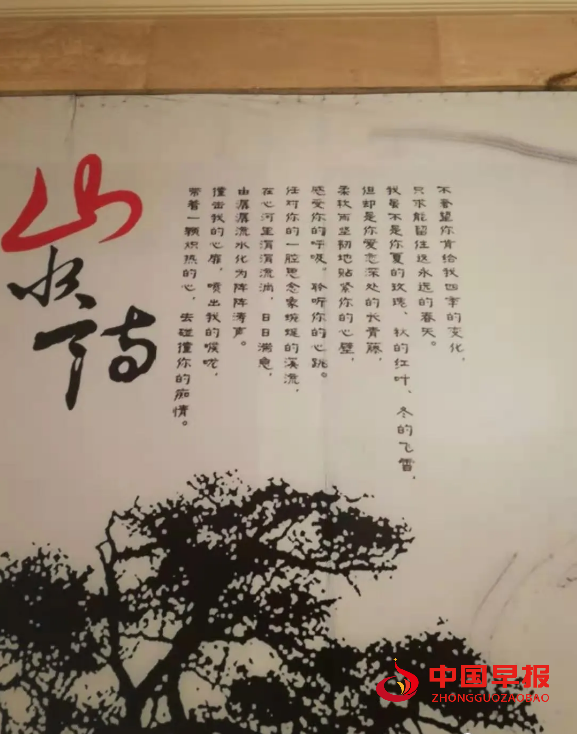 山水诗
不奢望你肯给我四季的变化，
只求能留住这永远的春天。
我虽不是你夏的玫瑰、秋的红叶、冬的飞雪，
但却是你爱恋深处的长青藤，
柔软而坚韧地贴紧你的心壁，
感受你的呼吸。聆听你的心跳。
任对你的一腔思念象蜿蜒的溪流，
在心河里涓涓流淌，日日满急，
由潺潺流水化为阵阵涛声。
撞击我的心扉，喷出我的喉咙，
带着一颗炽热的心，去碰撞你的痴情。
中国早报
ZHONGGUOZAOBAO